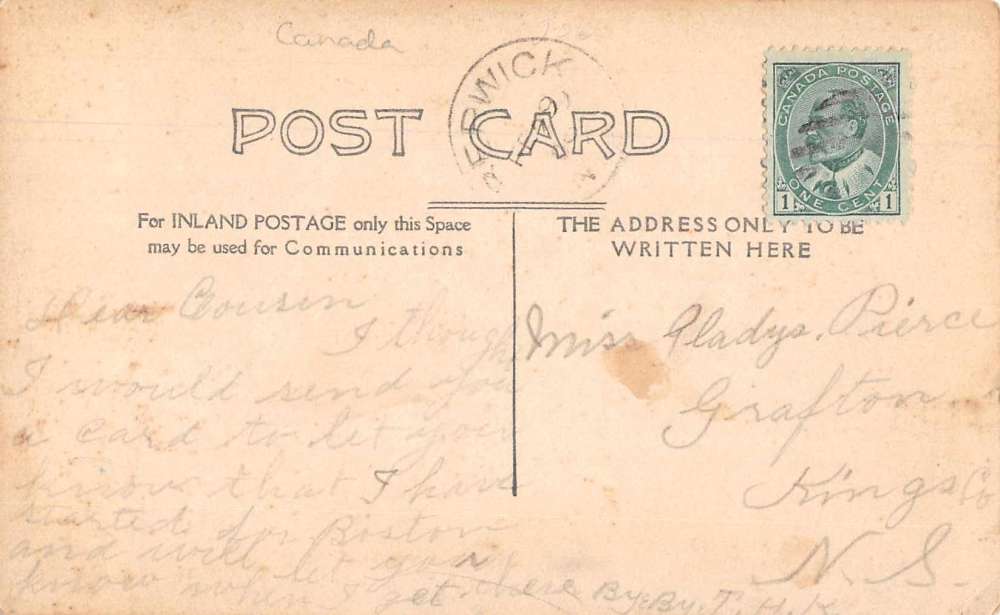 Canada
BERWICK
N
POST CARD
CANADA POSTAGE
1 ONE CENT 1
For INLAND POSTAGE only this Space
may be used for Communications
THE ADDRESS ONLY TO BE
WRITTEN HERE
Dear Cousin
I thought
I would send you
a card to let you
know that I have
started for Boston
and will let you
know when I get there By. By. T. H.
Miss Gladys. Pierce
Grafton
Kings Co
N. S.